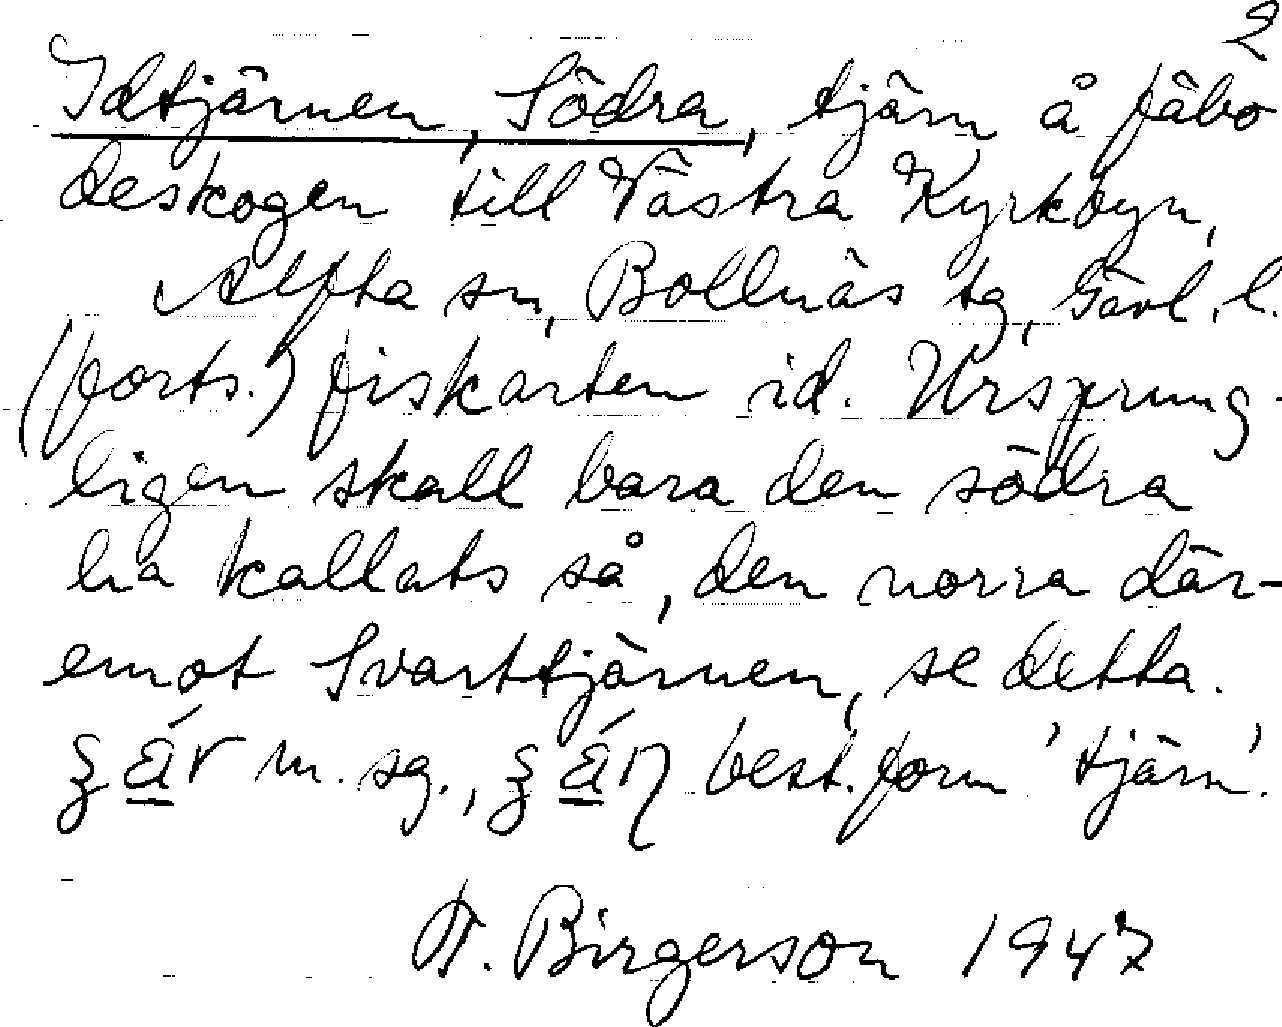 2
Idtjärnen, Södra, tjärn å fäbo
deskogen till Västra Kyrkbyn,
Alfta sn, Bollnäs tg, Gävl. l.
(forts.) fiskarten id. Ursprung-
ligen skall bara den södra
ha kallats så, den norra där-
emot Svarttjärnen, se detta.
m. sg., best. form 'tjärn'.
Birgerson 1947